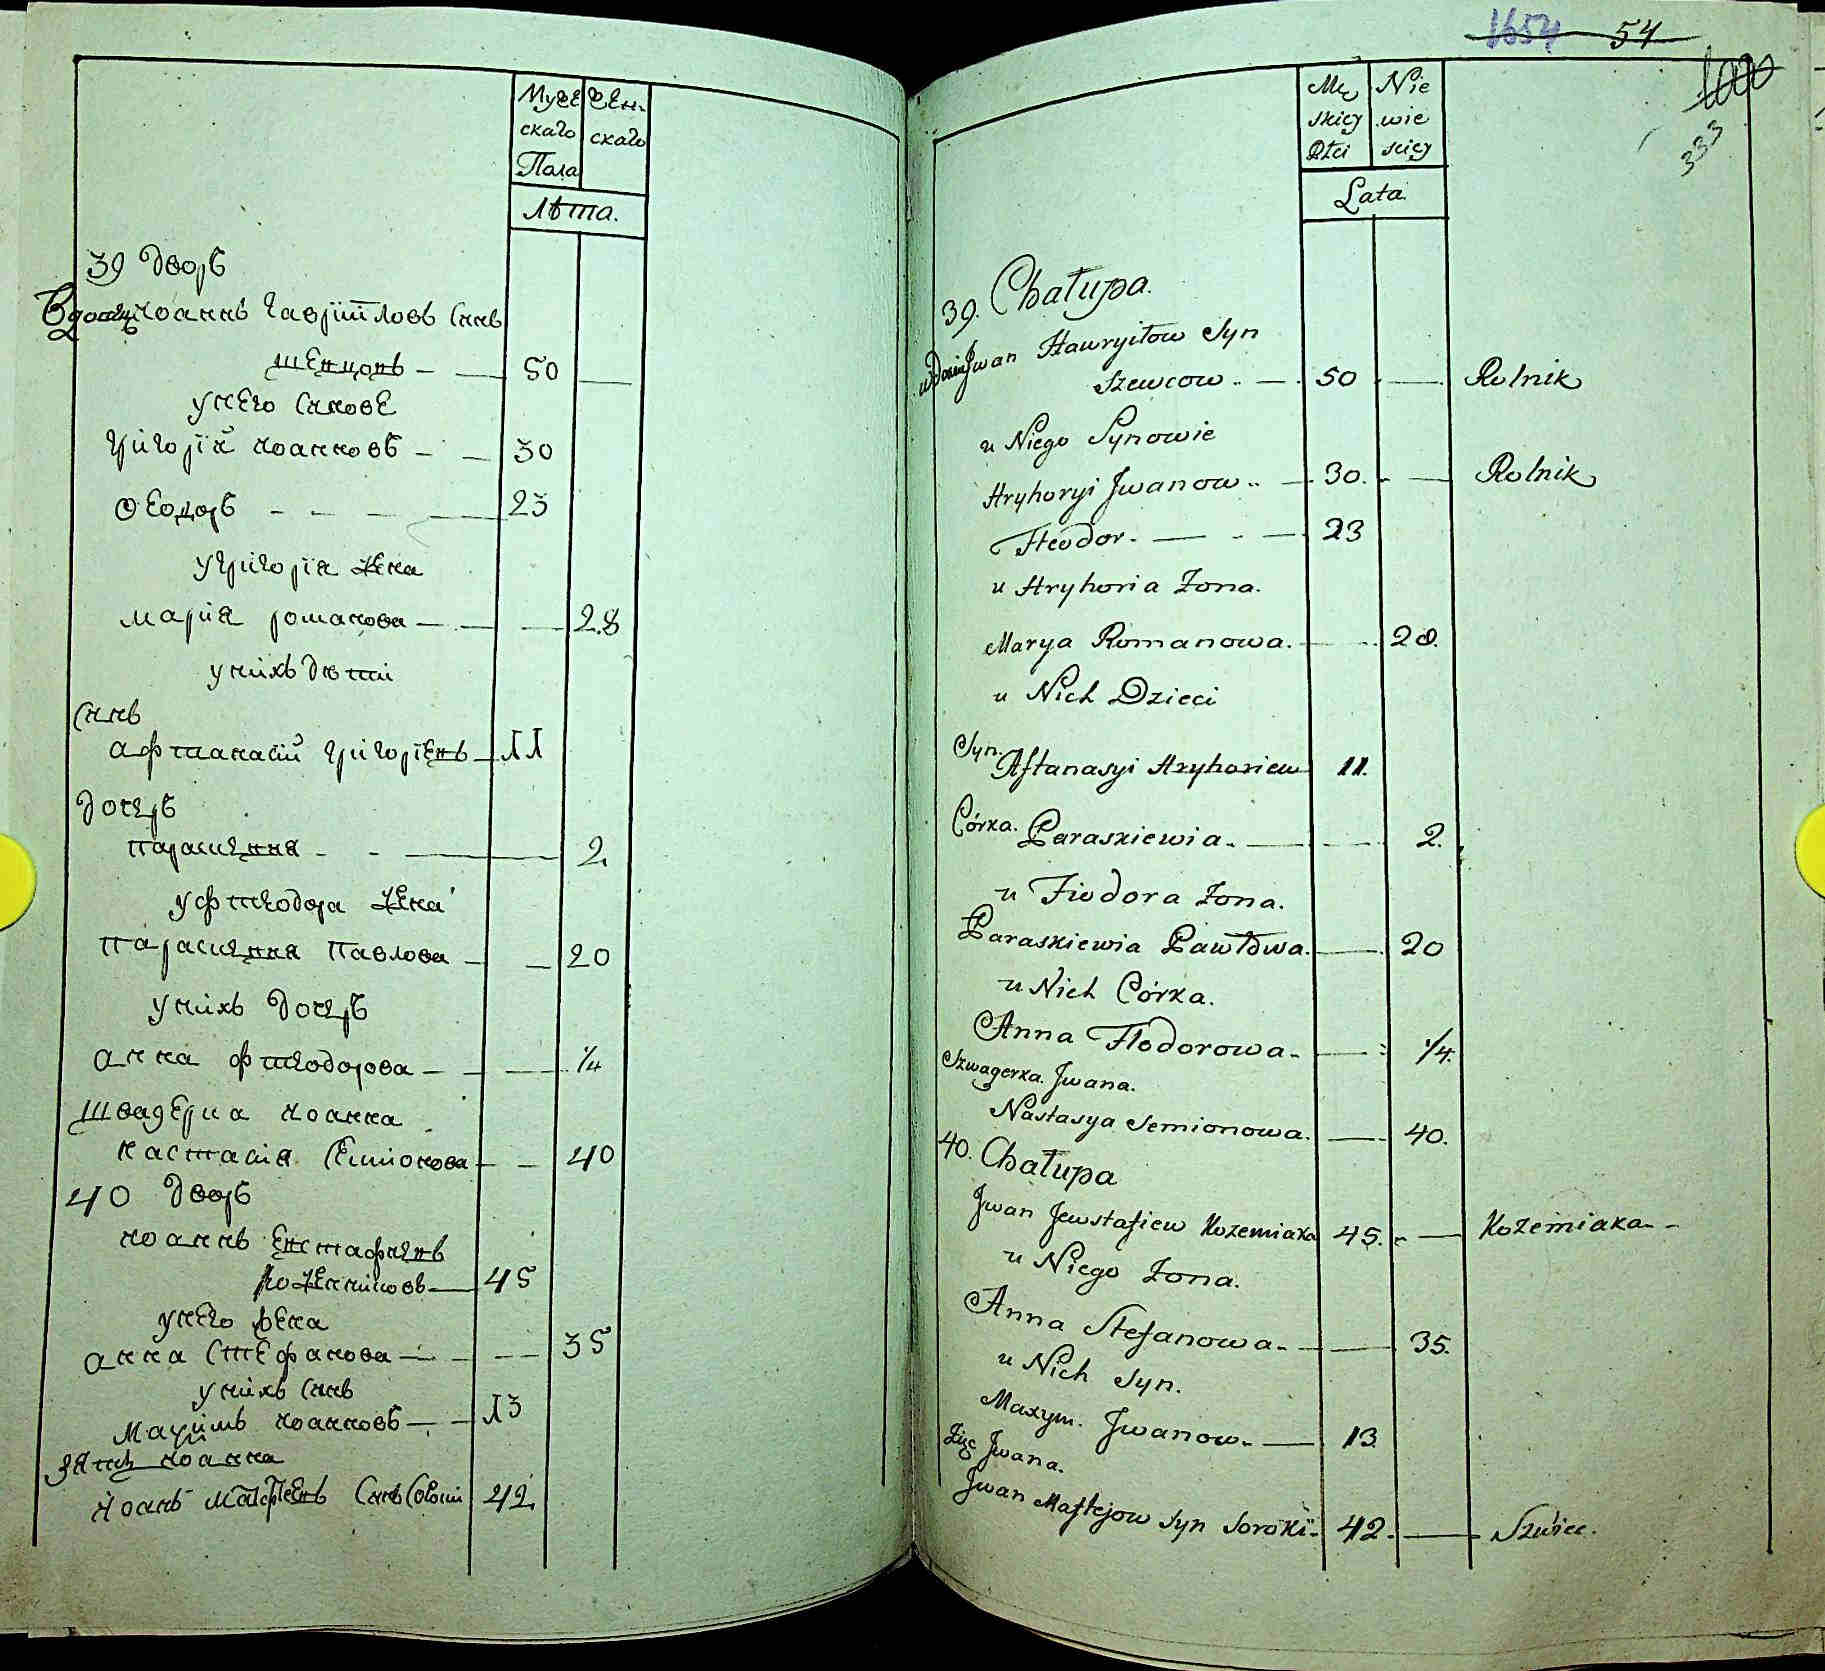 Муже Жен-
скаго скаго
Пола
Лѣта.
39 дворъ
Вдовецъ Иоаннъ Гаврииловъ Снъ
Шевцовъ — 50
у него Снове
Григорій Иоанновъ — 30
Ѳеодоръ — 23
у Григорія жена
Марія романова — 28
у нихъ дѣти
Снъ
афтанасий григоріевъ — 11
дочеръ
параскевия — 2
у фтеодора жена
параскевия павлова — 20
у нихъ дочеръ
анна фтеодорова — 1/4
швагерка иоанна
настасия семионова — 40
40 дворъ
иоаннъ евстафиевъ
— 45
у него жена
анна Стефанова — 35
у нихъ Снъ
Максимъ иоанновъ — 13
зять иоанна
Иоанъ Матфеевъ Снъ 42.
1654 54
333
Mę Nie
skiey wie
Płci sciey
Lata
39. Chałupa.
wdowiec Jwan Hawryiłow Syn
Szewcow — 50 — Rolnik
u Niego Synowie
Hryhoryi Jwanow — 30. — Rolnik
Fteodor. — 23
u Hryhoria Żona.
Marya Romanowa. — 28.
u Nich Dzieci
Syn.
Aftanasyi Hryhoriew 11.
Córka. Paraskiewia. — 2.
u Fiodora Żona.
Paraskiewia Pawłowa. — 20
u Nich Córka.
Anna Ftodorowa — 1/4.
Szwagerka Jwana.
Nastasya Semionowa. — 40.
40. Chałupa
Jwan Jewstafiew Kozemiaka 45. — Kozemiaka
u Niego Żona.
Anna Stefanowa — 35.
u Nich Syn.
Maxym. Jwanow — 13.
Zięć Jwana.
Jwan Maftejow Syn Soroki 42. — Szwiec.